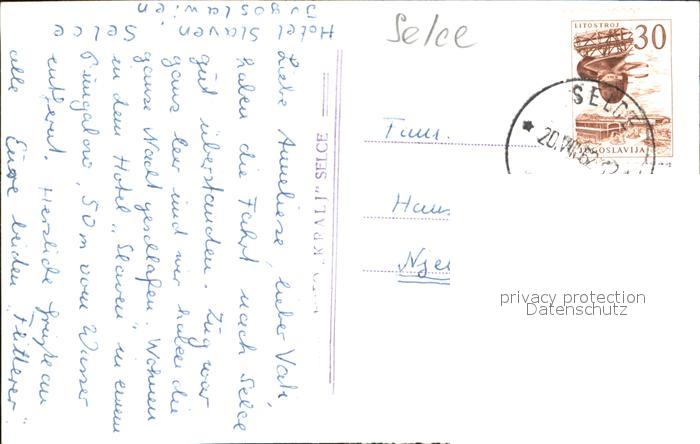 Hotel Slaven, Selce
Jugoslawien
Liebe Anneliese, lieber Vati,
haben die Fahrt nach Selce
gut überstanden. Zug war
ganz leer und wir haben die
ganze Nacht geschlafen. Wohnen
in dem Hotel „Slaven" in einem
Bungalow, 50 m vom Wasser
entfernt. Herzliche Grüße an
alle Eure beiden „Flitterer"
SELCE
Selce
LITOSTROJ
30
JUGOSLAVIJA
SELCE
Fam.
Haus
privacy protection
Datenschutz